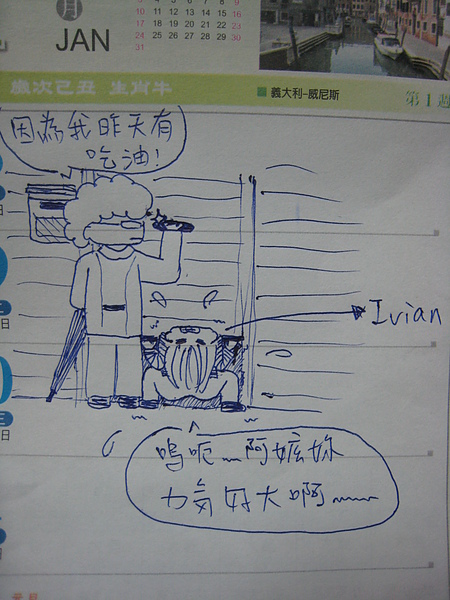 月
JAN
10 11 12 13 14 15 16
17 18 19 20 21 22 23
24 25 26 27 28 29 30
31
歲次己丑 生肖牛
義大利-威尼斯
第1週
因為我昨天有
吃油!
Ivian
嗚呃~阿嬤妳
力気好大啊~~~
二
日
三
日